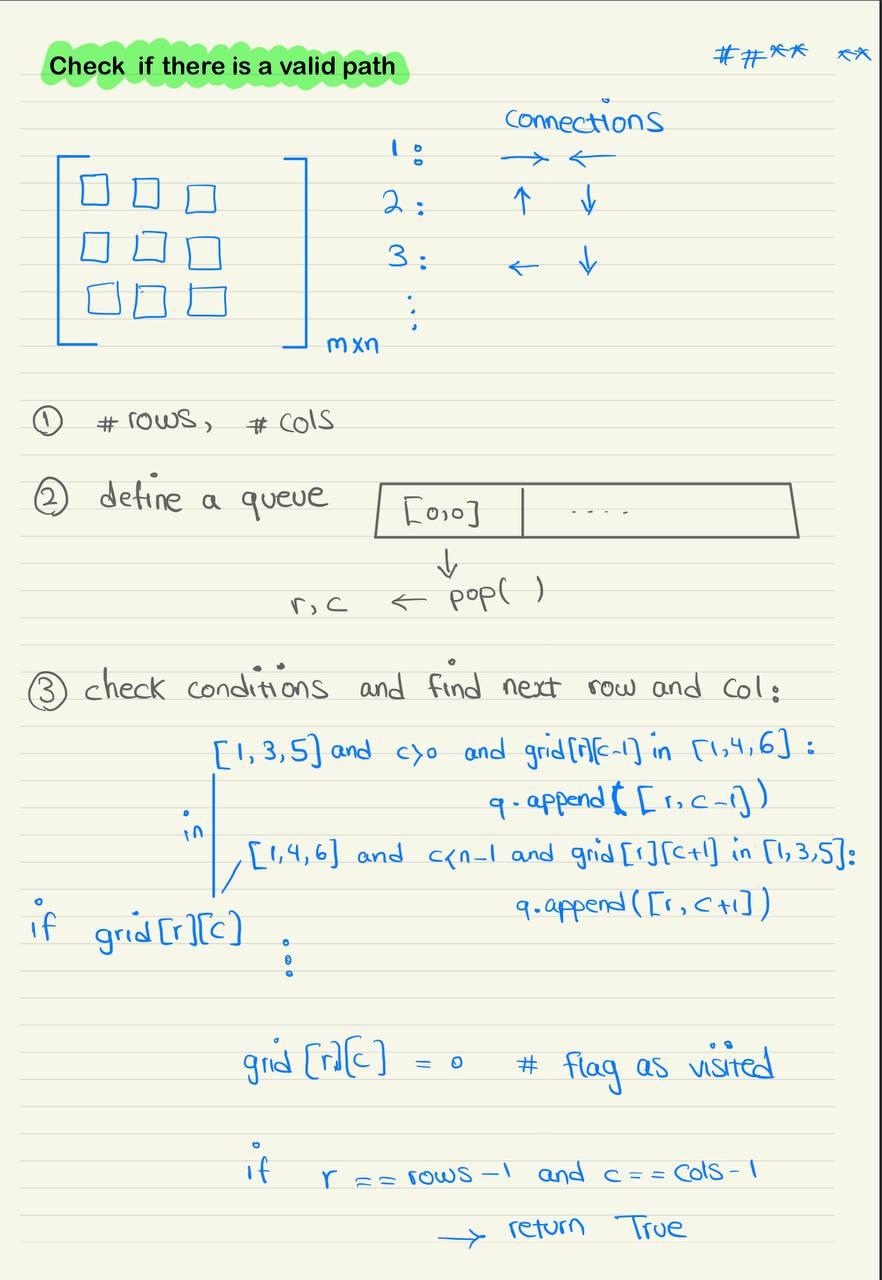 Check if there is a valid path
##** **
connections
1: → ←
2: ↑ ↓
3: ← ↓
⋮
mxn
① # rows, # cols
② define a queue [0,0] ....
↓
r,c ← pop( )
③ check conditions and find next row and col:
[1,3,5] and c>0 and grid[r][c-1] in [1,4,6]:
q.append([r,c-1])
in
[1,4,6] and c<n-1 and grid[r][c+1] in [1,3,5]:
q.append([r,c+1])
if grid[r][c]
⋮
grid[r][c] = 0 # flag as visited
if r == rows-1 and c == cols-1
→ return True